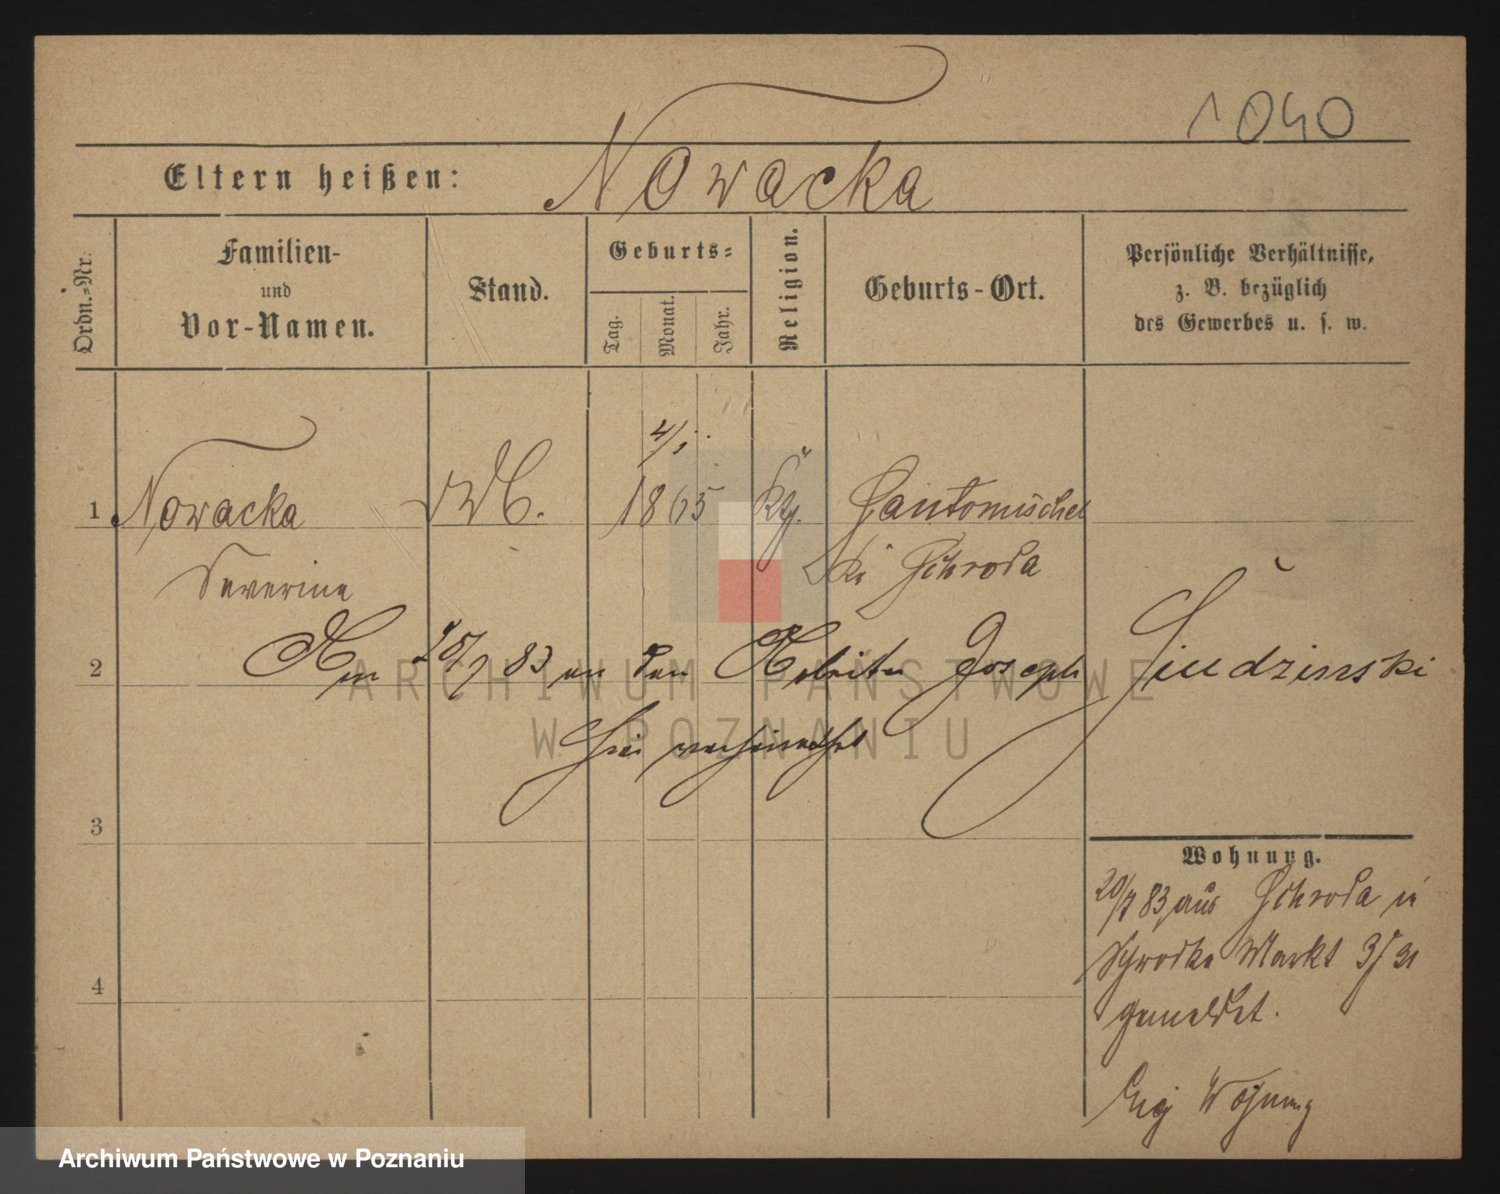 1040
Eltern heißen: Nowacka
Ordn.=Nr.
Familien-
und
Vor-Namen.
Stand.
Geburts=
Tag.
Monat.
Jahr.
Religion.
Geburts-Ort.
Persönliche Verhältnisse,
z. B. bezüglich
des Gewerbes u. s. w.
4/
1 Nowacka 1865 Santomischel
Severine Schroda
2 83 an den Arbeiter Joseph
hier verheirathet
3
Wohnung.
20/7 83 aus Schroda in
Schrodka Markt
gemeldet.
4
Eig Wohnung
ARCHIWUM PAŃSTWOWE
W POZNANIU
Archiwum Państwowe w Poznaniu